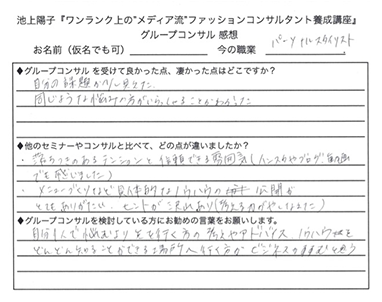 池上陽子『ワンランク上の"メディア流"ファッションコンサルタント養成講座』
グループコンサル 感想
お名前(仮名でも可) 今の職業 パーソナルスタイリスト
◆グループコンサル を受けて良かった点、凄かった点はどこですか?
自分の課題が少し見えた。
同じような悩みの方がいらっしゃることがわかった
◆他のセミナーやコンサルと比べて、どの点が違いましたか?
・落ちつきのあるテンションと信頼できる雰囲気(
でも感じました)
・メニューづくりなど具体的なノウハウの 公開が
とてもありがたい。ヒントが沢山あり(考える力が つきました)
◆グループコンサルを検討している方にお勧めの言葉をお願いします。
自分1人で悩むより 先を行く方の考えやアドバイス ノウハウを
どんどん 場所へ行く方が ビジネスが 思う